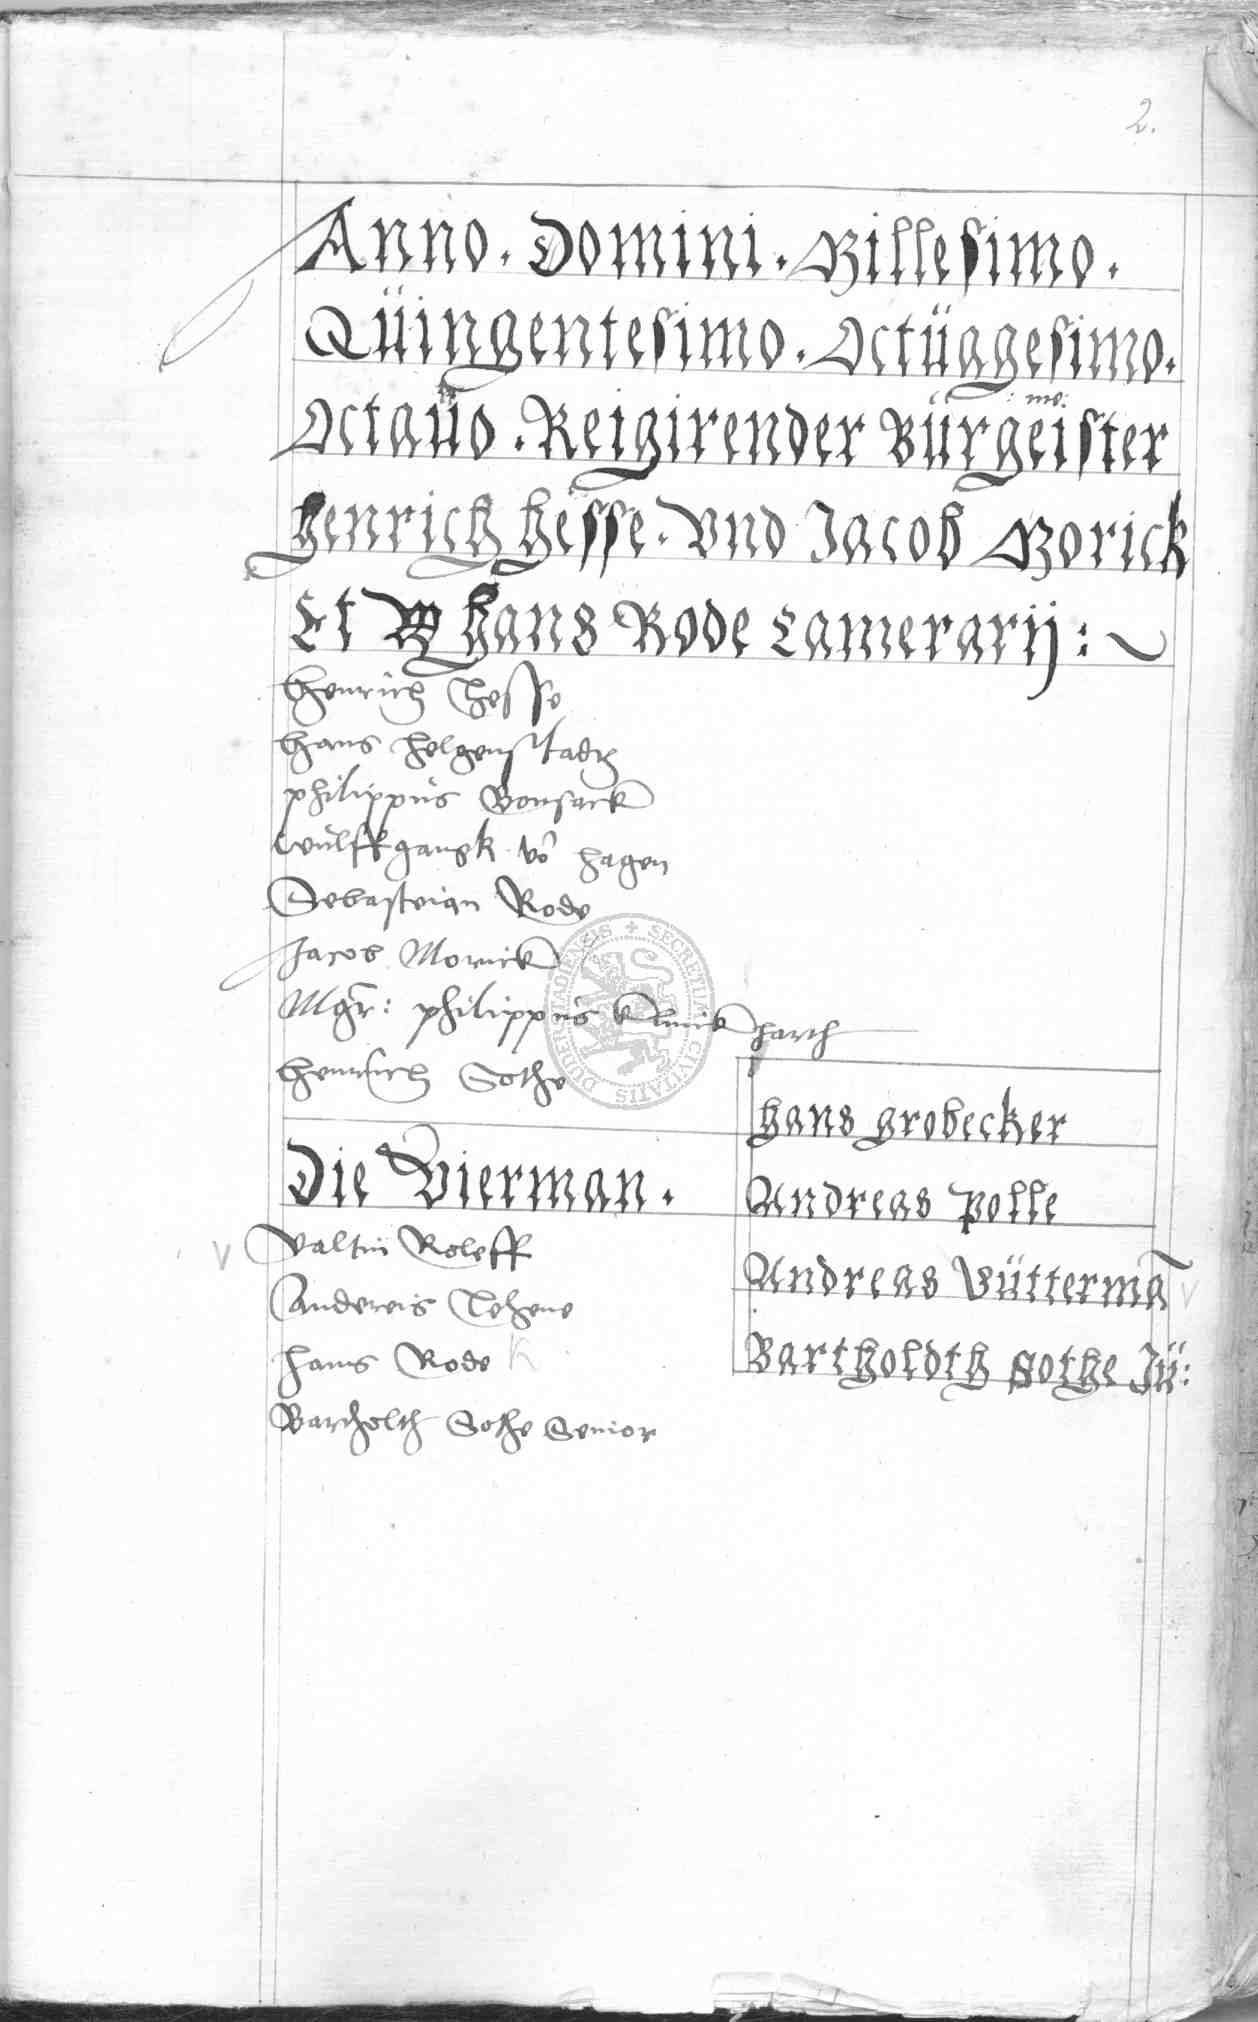 2.
Anno. Domini. Millesimo.
Qüingentesimo. Octüagesimo.
: me:
Octaüo. Reigirender Bürgeister
Henrich Hesse. Vnd Jacob Morick
Et W Hans Rode Camerarij:
Henrich Hesse
Hans Helgenstadt
philippus Bonsack
Wulffgansk vo hagen
Sebasteian Rode
Jacob Morick
Mgr: philippus Klinckharth
Henrich Sothe
Die Vierman.
Valtin Roleff
Andereis Tehene
Hans Rode
Bartholth Sothe Senior
Hans Grobecker
Andreas Polle
Andreas Vütterma
Bartholdth Sothe Jü:
DUDERSTADIENSIS + SECRETUM CIVITATIS